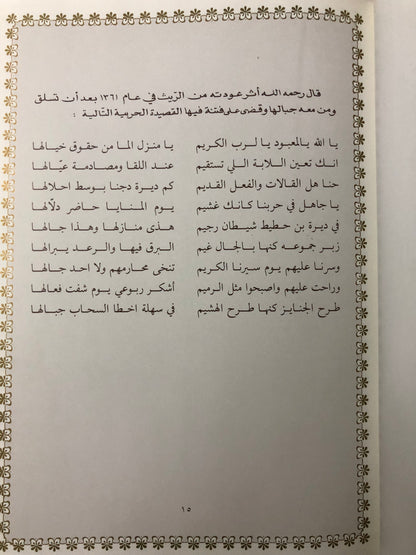 قال رحمه الله أثر عودته من الرّيث في عام ١٣٦١ بعد أن تسلق
ومن معه جبالها وقضى على فتنة فيها القصيدة الحربية التالية :
يا الله يالمعبود يا لرب الكريم يا منزل الما من حقوق خيالها
انك تعين اللابة اللي تستقيم عند اللقا ومصادمة عيّالها
حنا هل القالات والفعل القديم كم ديرة دجنا بوسط احلالها
يا جاهل في حربنا كانك غشيم يوم المنايا حاضر دلّالها
في ديرة بن حطيط شيطان رجيم هذى منازلها وهذا جالها
زبر جموعه كنها بالجال غيم البرق فيها والرعد يبرالها
وسرنا عليهم يوم سيرنا الكريم تنخى محارمهم ولا احد جالها
وراحت عليهم واصبحوا مثل الرميم أشكر ربوعي يوم شفت فعالها
طرح الجنايز كنها طرح الهشيم في سهلة اخطا السحاب جبالها
١٥